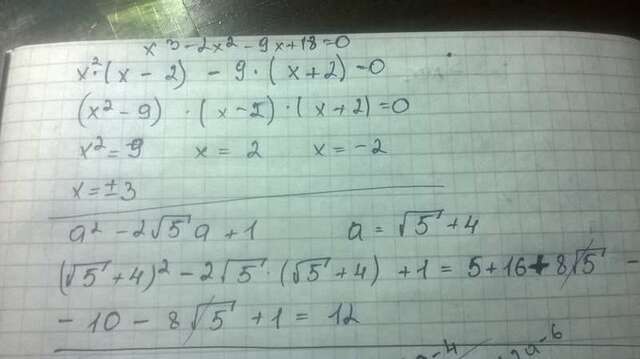 x³ - 2x² - 9x + 18 = 0
x² · (x - 2) - 9 · (x + 2) = 0
(x² - 9) · (x - 2) · (x + 2) = 0
x² = 9 x = 2 x = -2
x = ±3
a² - 2√5 a + 1 a = √5 + 4
(√5 + 4)² - 2√5 · (√5 + 4) + 1 = 5 + 16 + 8√5 -
- 10 - 8√5 + 1 = 12